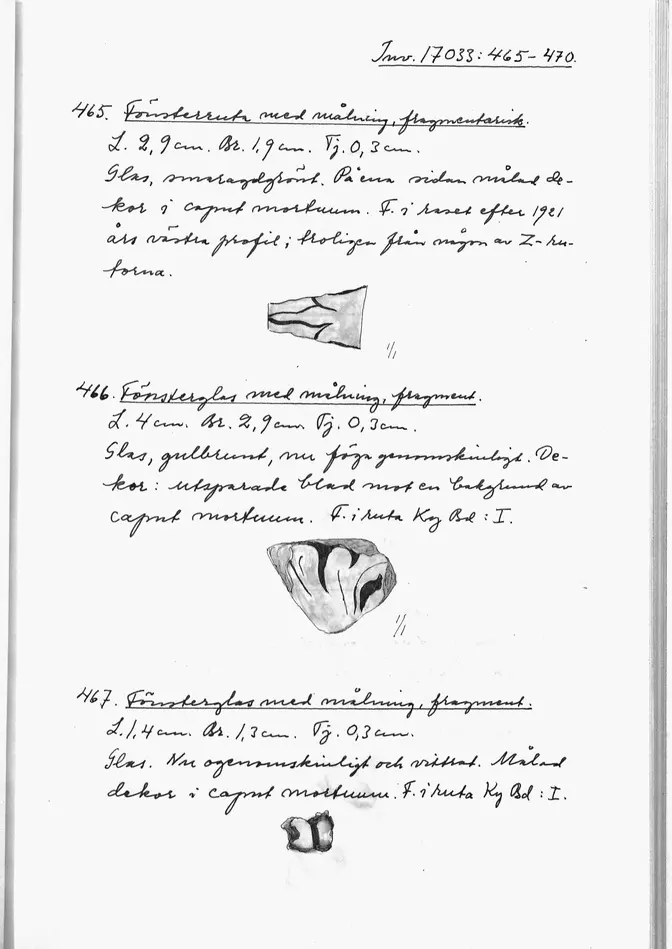 Inv. 17033: 465-470.
465. Fönsterruta med målning, fragmentarisk.
L. 2,9 cm. Br. 1,9 cm. Tj. 0,3 cm.
Glas, smaragdgrönt. På ena sidan målad de-
kor i caput mortuum. F. i raset efter 1921
års västra profil; troligen från någon av Z-ru-
torna.
1/1
466. Fönsterglas med målning, fragment.
L. 4 cm. Br. 2,9 cm. Tj. 0,3 cm.
Glas, gulbrunt, nu föga genomskinligt. De-
kor: utsparade blad mot en bakgrund av
caput mortuum. F. i ruta Ky Bd: I.
1/1
467. Fönsterglas med målning, fragment.
L. 1,4 cm. Br. 1,3 cm. Tj. 0,3 cm.
Glas. Nu ogenomskinligt och vittrat. Målad
dekor i caput mortuum. F. i ruta Ky Bd: I.